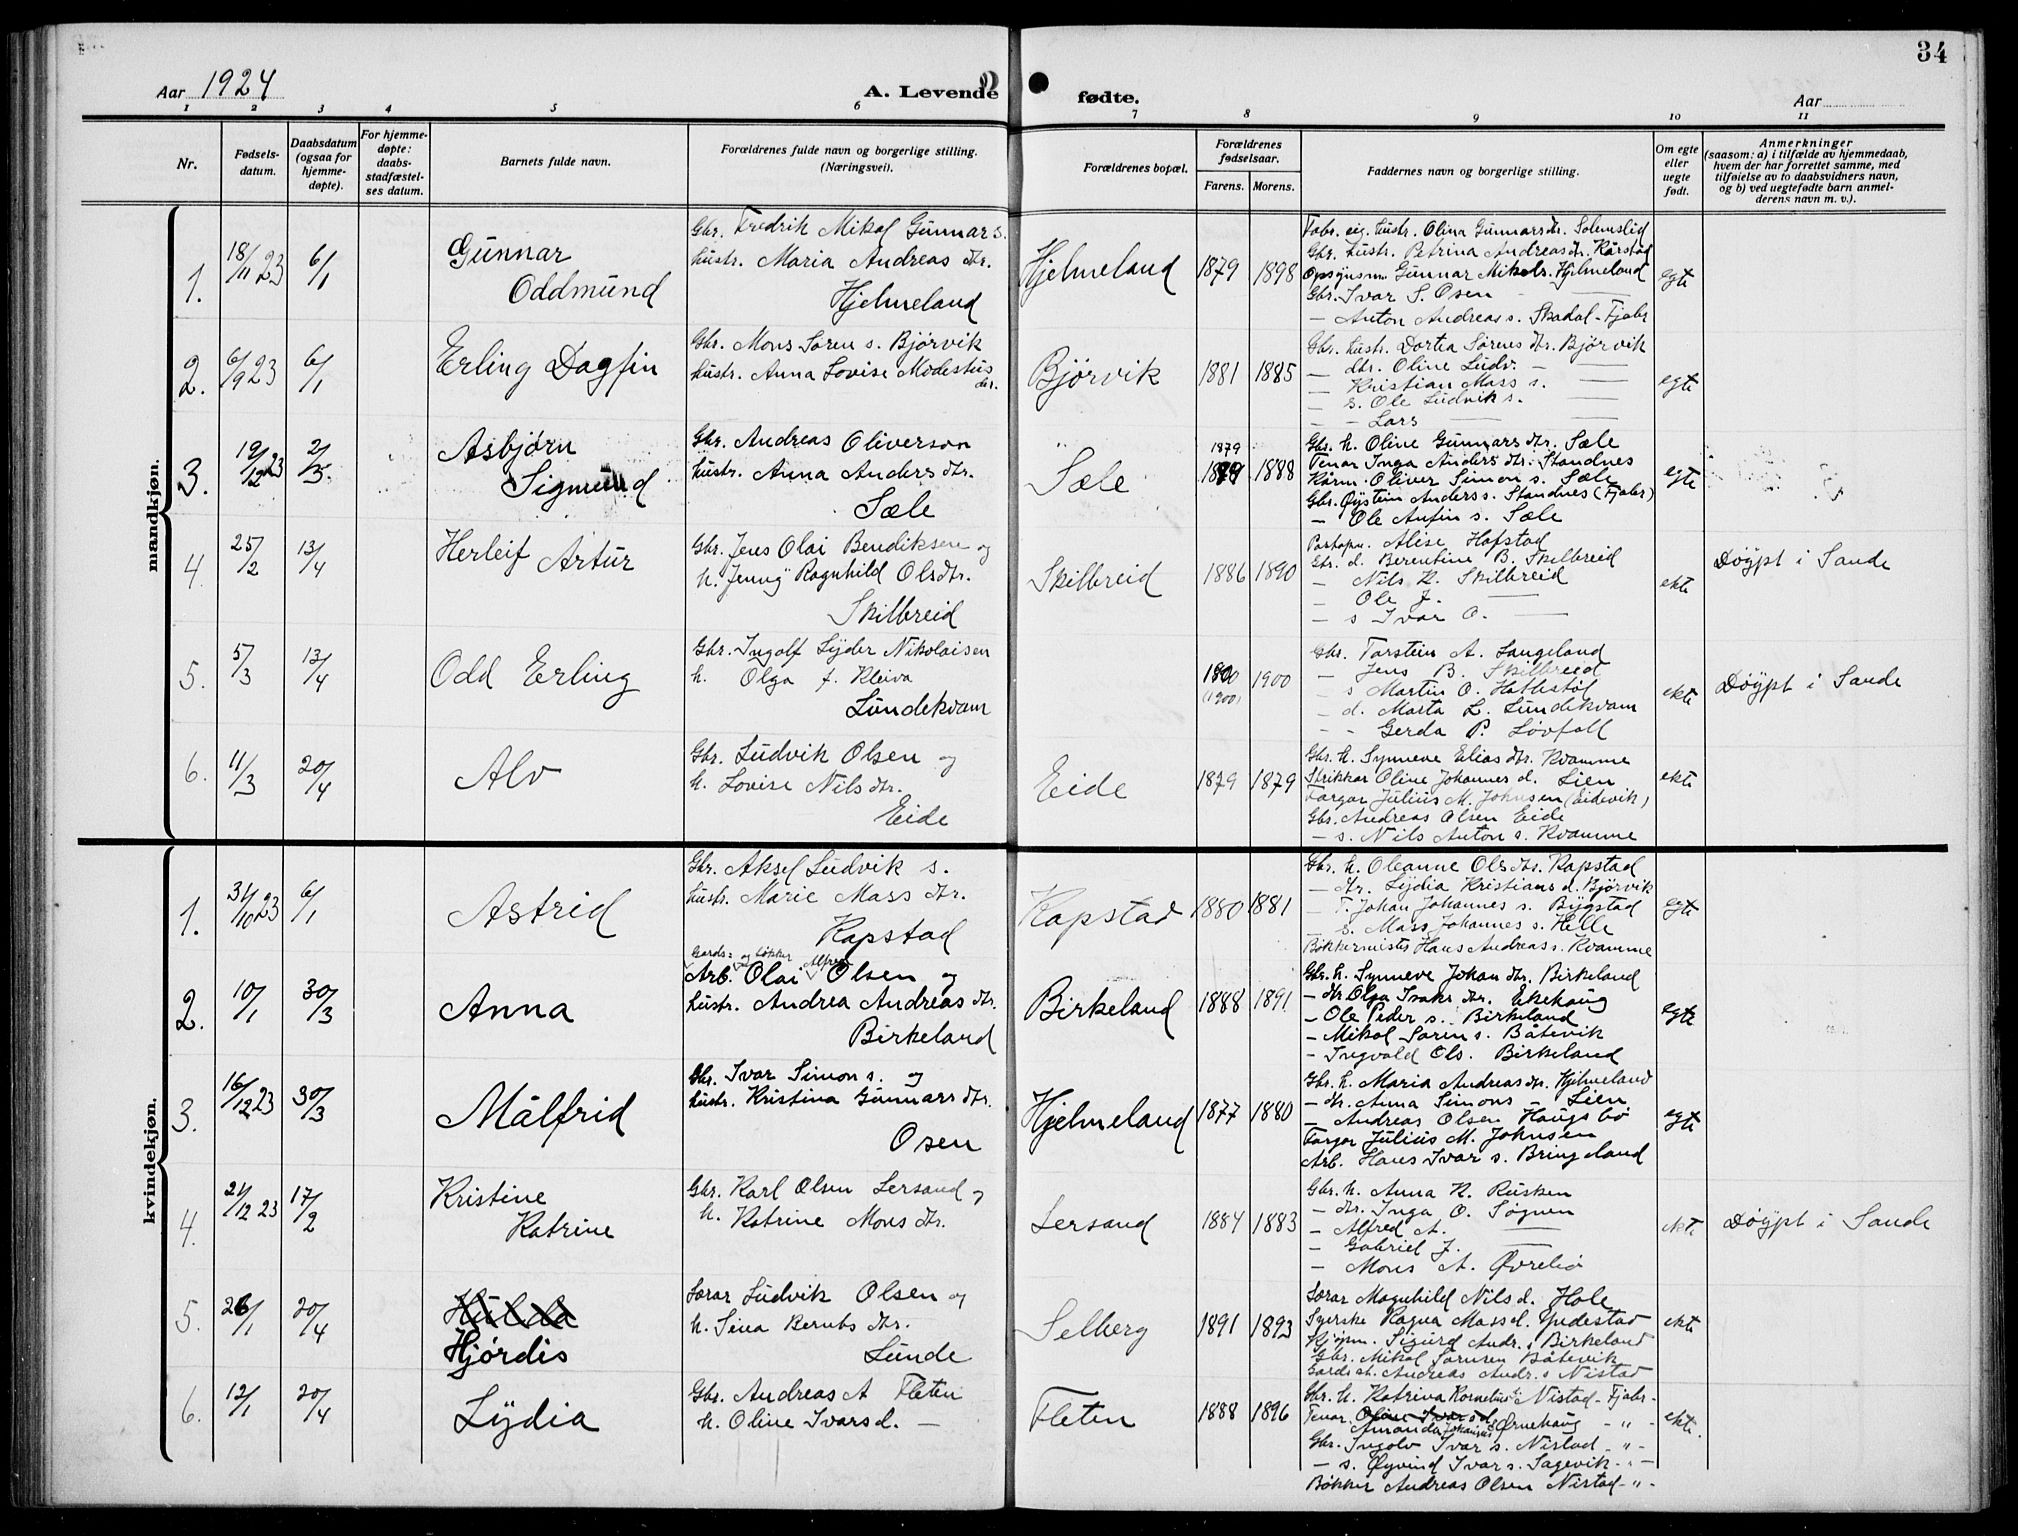 34
Aar 1924
A. Levende fødte.
Aar
1 2 3 4 5 6 7 8 9 10 11
Nr.
Fødsels-
datum.
Daabsdatum
(ogsaa for
hjemme-
døpte).
For hjemme-
døpte:
daabs-
stadfæstel-
ses datum.
Barnets fulde navn.
Forældrenes fulde navn og borgerlige stilling.
(Næringsvei).
Forældrenes bopæl.
Forældrenes
fødselsaar.
Farens. Morens.
Faddernes navn og borgerlige stilling.
Om egte
eller
uegte
født.
Anmerkninger
(saasom: a) i tilfælde av hjemmedaab,
hvem der har forrettet samme, med
tilføielse av to daabsvidners navn,
og b) ved uegtefødte barn anmel-
derens navn m. v.).
mandkjøn.
1. 18/11 23 6/1
Gunnar
Oddmund
Gbr. Fredrik Mikal Gunnar s.
hustr. Maria Andreas dtr.
Hjelmeland
Hjelmeland 1879 1898
Fabr. eig. hustr. Olina Gunnarsdtr. Solmslid
Gbr. hustr. Petrina Andreasdtr. Kårstad
Opsynsm. Gunnar Mikals. Hjelmeland
Gbr. Ivar S. Osen —
— Anton Andreas s. Skadal - Fjaler
egte
2. 6/9 23 6/1
Erling Dagfin
Gbr. Mons Søren s. Bjørvik
hustr. Anna Lovise Modestus
dtr.
Bjørvik 1881 1885
Gbr. hustr. Dortea Sørens dtr. Bjørvik
— dtr. Oline Ludv. — —
— Kristian Mass s. —
— s. Ole Ludvik s. —
— — Lars — —
egte
3. 19/12 23 2/3
Asbjørn
Sigmund
Gbr. Andreas Oliverson
hustr. Anna Anders dtr.
Sæle
Sæle 1879 1888
Gbr. h. Oline Gunnars dtr. Sæle
Tenar Inga Anders dtr. Standnes
Kårm. Oliver Simon s. Sæle
Gbr. Øystein Anders s. Standnes (Fjaler)
— Ole Anfin s. Sæle
egte
4. 25/2 13/4
Herleif Artur
Gbr. Jens Olai Bendiksen og
h. Jenny Ragnhild Olsdtr.
Skilbreid
Skilbreid 1886 1890
Postopn. Alise Hofstad
Gbr. d. Berentine B. Skilbreid
— Nils K. Skilbreid
— Ole J. —
— s Ivar O. —
ekte
Døypt i Sande
5. 5/3 13/4
Odd Erling
Gbr. Ingolf Lyder Nikolaisen
h. Olga f. Kleiva
Lundekvam
1800 1900
(1900)
Gbr. Torstein A. Langeland
— Jens B. Skilbreid
— s Martin O. Hatlestøl
— d. Marta L. Lundekvam
— - Gerda P. Løvfall
ekte
Døypt i Sande
6. 11/3 20/4
Alv
Gbr. Ludvik Olsen og
h. Lovise Nils dtr.
Eide
Eide 1879 1879
Gbr. h. Synneve Elias dtr. Kvamme
Strikkar Oline Johannes d. Lien
Fargar Julius M. Johnsen (Eidevik)
Gbr. Andreas Olsen Eide
— s. Nils Anton s. Kvamme
ekte
kvindekjøn.
1. 31/10 23 6/1
Astrid
Gbr. Aksel Ludvik s.
hustr. Marie Mass dtr.
Kapstad
Kapstad 1880 1881
Gbr. h. Oleanne Ols dtr. Kapstad
— dtr. Lydia Kristians d. Bjørvik
— F. Johan Johannes s. Bygstad
— s. Mass Johannes s. Helle
Bøkkermester Hans Andreas s. Kvamme
egte
2. 10/1 30/3
Anna
Gards- og bøkker Alfred
Arb. Olai Olsen og
hustr. Andrea Andreas dtr.
Birkeland
Birkeland 1888 1891
Gbr. h. Synneve Johan dtr. Birkeland
— dtr Olga Isaks dtr. Ekehaug
— Ole Peder s. Birkeland
— Mikal Søren s. Båtevik
— Ingvald Ols. Birkeland
egte
3. 16/12 23 30/3
Målfrid
Gbr. Ivar Simon s. og
hustr. Kristina Gunnars dtr.
Osen
Hjelmeland 1877 1880
Gbr. h. Maria Andreas dtr. Hjelmeland
— dtr. Anna Simons — Lien
— Andreas Olsen Haugsbø
Fargar Julius M. Johnsen
Arb. Hans Ivar s. Bringeland
egte
4. 21/12 23 17/2
Kristine
Katrine
Gbr. Karl Olsen Lersand og
h. Katrine Mons dtr.
Lersand 1884 1883
Gbr. h. Anna K. Rusken
— dtr. Inga O. Søgnen
— Alfred A. —
— Gabriel J. —
— Mons A. Øvrebø
ekte
Døypt i Sande
5. 26/1 20/4
Hulda
Hjørdis
Lærar Ludvik Olsen og
h. Sina Bernts dtr.
Lunde
Selberg 1891 1893
Lærar Magnhild Nils d. Hole
Syerske Ragna Mass d. Yndestad
Kjøpm. Sigurd Andr. s Birkeland
Gbr. Mikal Sørensen Båtevik
Gardsarb. Andreas Andr. s Nistad
ekte
6. 12/1 20/4
Lydia
Gbr. Andreas A Fleten
h. Oline Ivars d. —
Fleten 1888 1896
Gbr. h. Katrina Kornelius d. Nistad - Fjaler -
Tenar. Oline Ivars d.
Amanda Johannes d. Ørnehaug - " -
Gbr. Ingolv Ivar s. Nistad - " -
— s. Øyvind Ivar s. Sagevik - " -
Bøkker Andreas Olsen Nistad - " -
ekte.